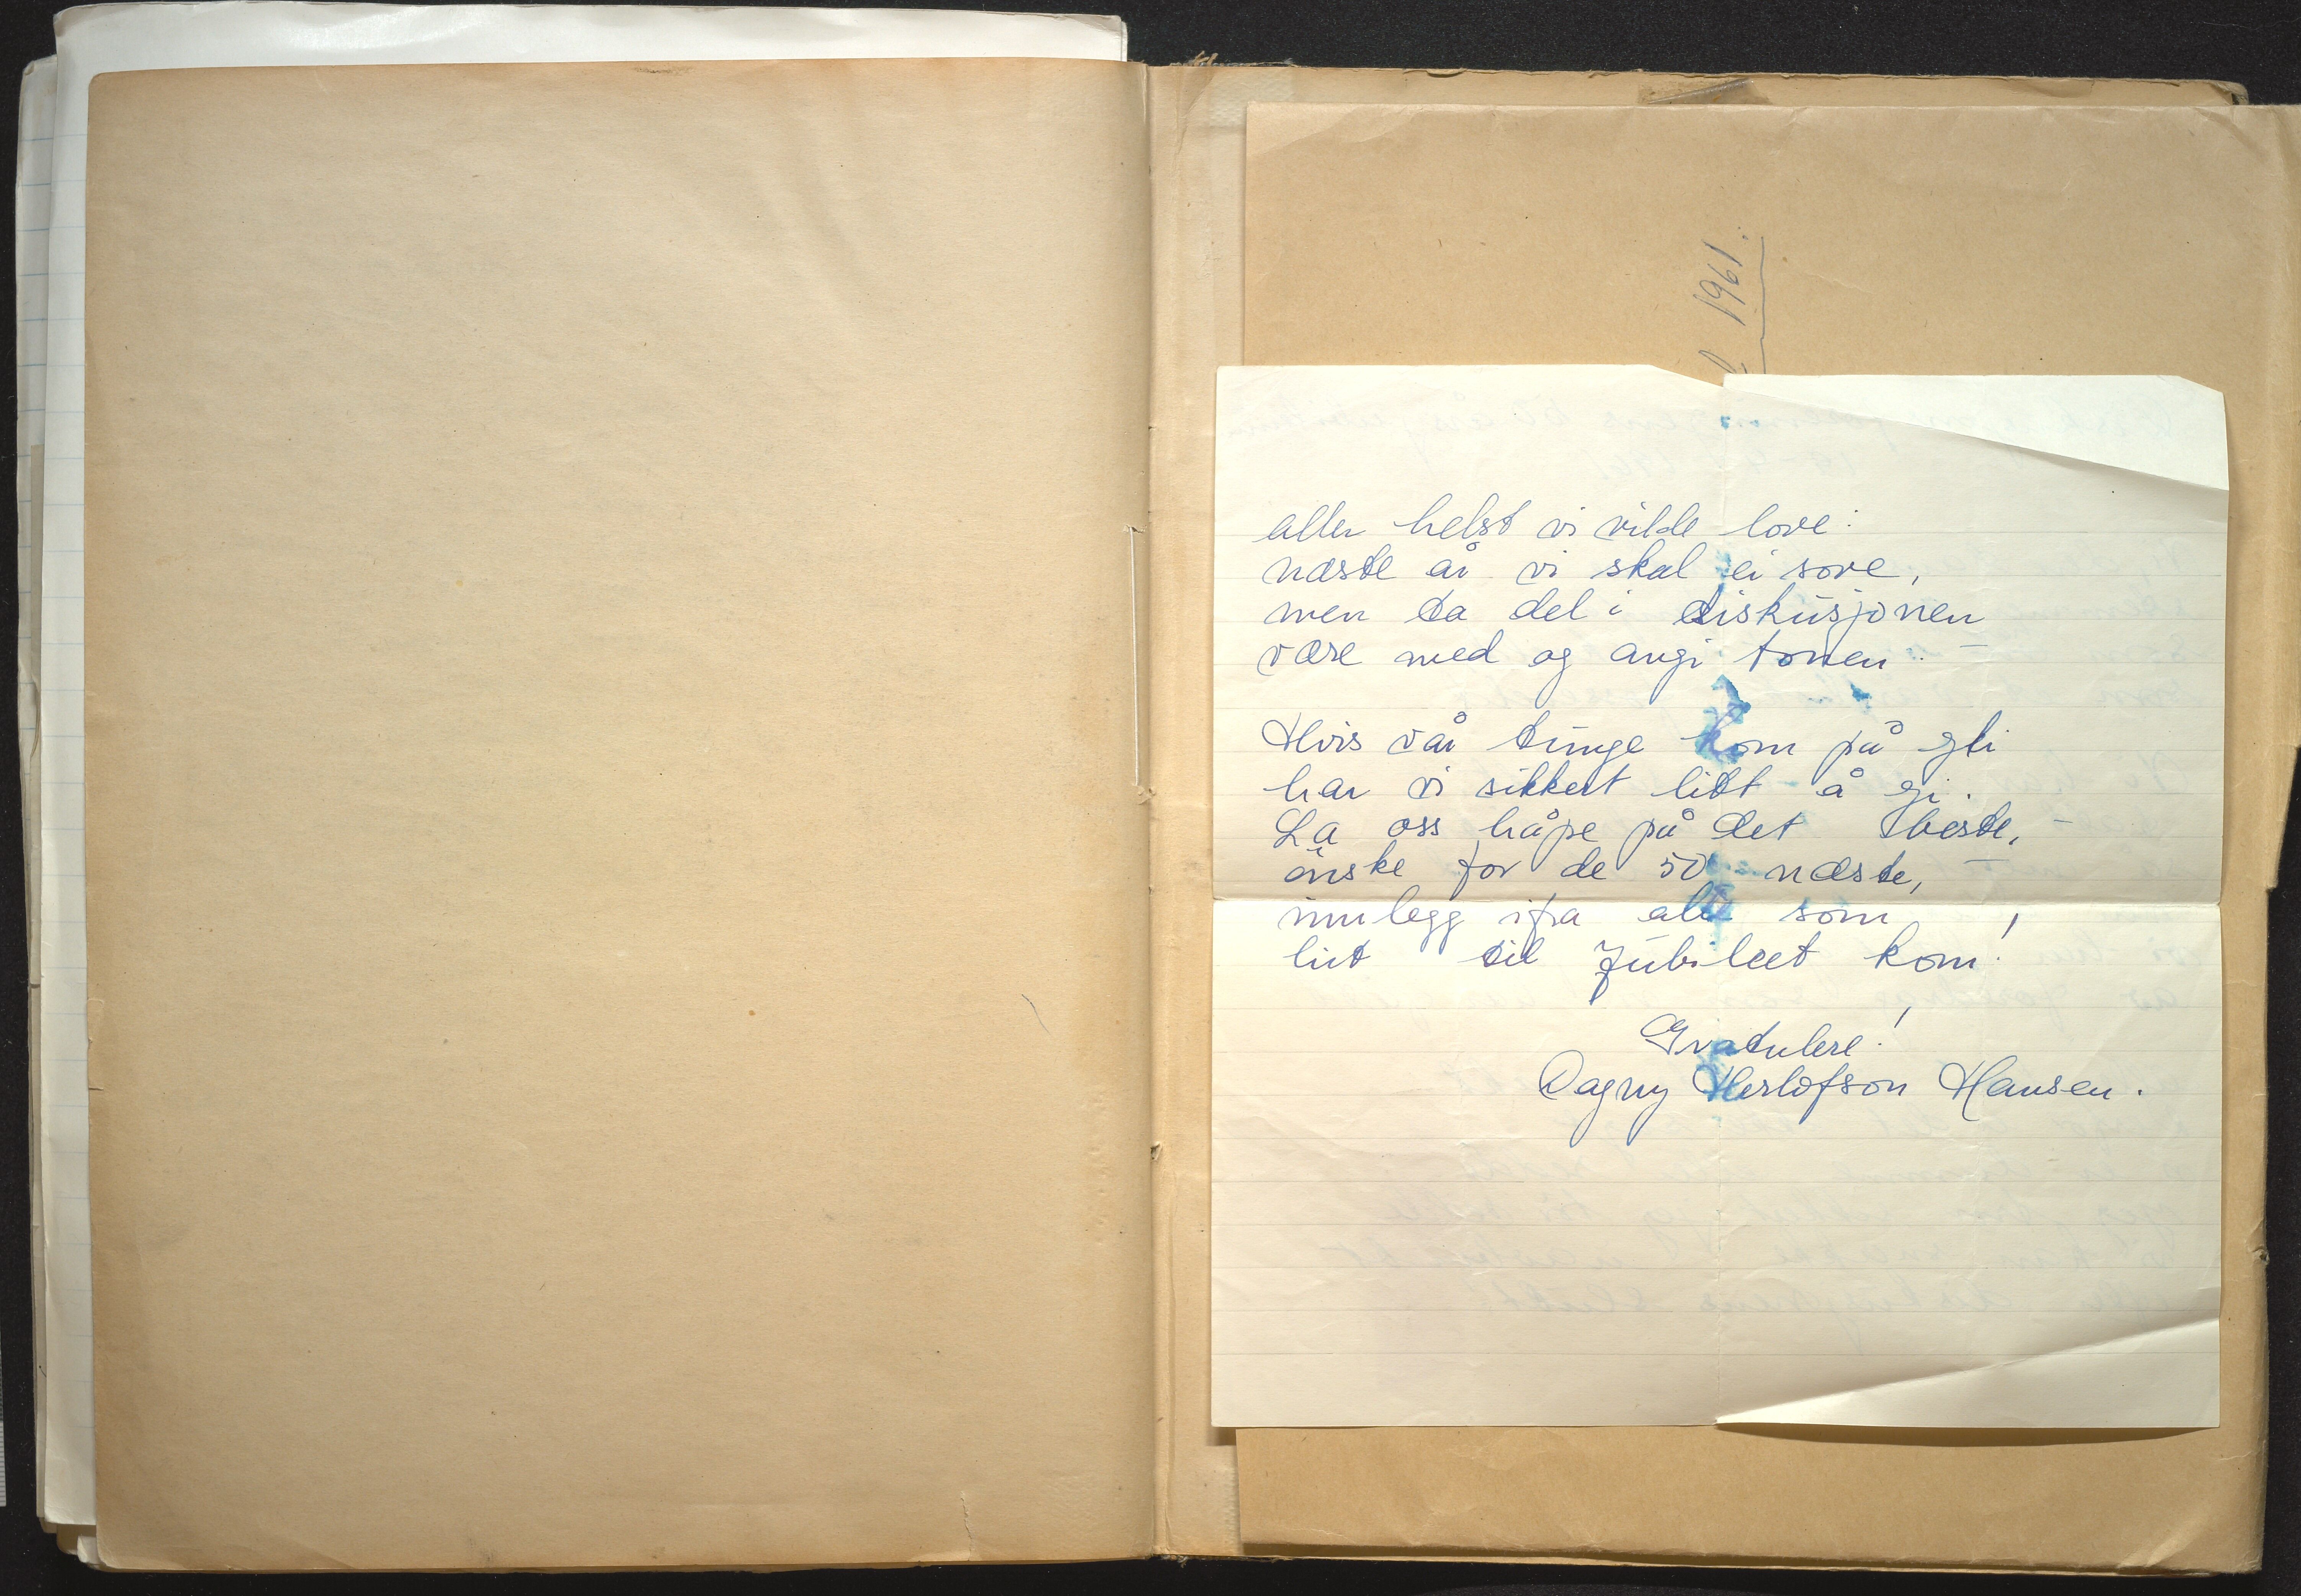 1961.
aller helst vi vilde love:
næste år vi skal ei sove,
men ta del i diskusjonen
være med og angi tonen. –
Hvis vår tunge kom på gli
har vi sikkert litt å gi.
La oss håpe på det beste, –
ønske for de 50 næste, –
innlegg ifra alle som
hit til Jubileet kom!
Gratulere!
Dagny Herlofson Hansen.